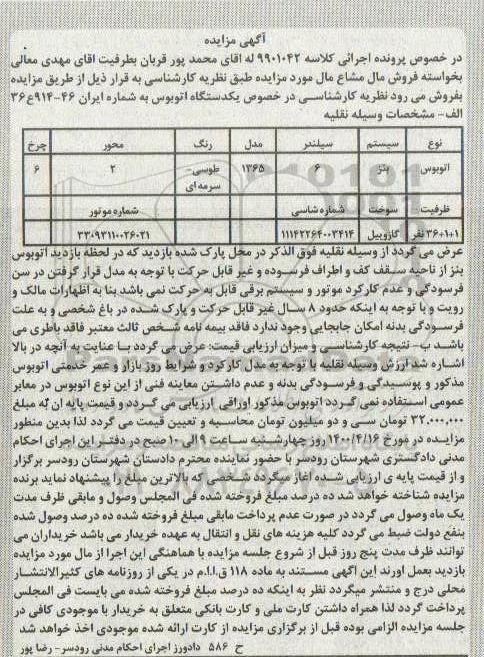 آگهی مزایده
در خصوص پرونده اجرائی کلاسه ۹۹۰۱۰۴۲ له اقای محمد پور قربان بطرفیت اقای مهدی معالی
بخواسته فروش مال مشاع مال مورد مزایده طبق نظریه کارشناسی به قرار ذیل از طریق مزایده
بفروش می رود نظریه کارشناسی در خصوص یکدستگاه اتوبوس به شماره ایران ۴۶-۹۱۴ع۳۶
الف- مشخصات وسیله نقلیه
نوع سیستم سیلندر مدل رنگ محور چرخ
اتوبوس بنز ۶ ۱۳۶۵ طوسی- سرمه ای ۲ ۶
ظرفیت سوخت شماره شاسی شماره موتور
۳۶+۱+۱ نفر گازوییل ۱۱۱۴۲۲۶۴۰۰۳۴۱۴ ۳۳۰۹۳۱۱۰۰۲۶۰۲۱
عرض می گردد از وسیله نقلیه فوق الذکر در محل پارک شده بازدید که در لحظه بازدید اتوبوس
بنز از ناحیه سقف کف و اطراف فرسوده و غیر قابل حرکت با توجه به مدل قرار گرفتن در سن
فرسودگی و عدم کارکرد موتور و سیستم برقی قابل به حرکت نمی باشد بنا به اظهارات مالک و
رویت و با توجه به اینکه حدود ۸ سال غیر قابل حرکت و پارک شده در باغ شخصی و به علت
فرسودگی بدنه امکان جابجایی وجود ندارد فاقد بیمه نامه شخص ثالث معتبر فاقد باطری می
باشد ب- نتیجه کارشناسی و میزان ارزیابی قیمت: عرض می گردد با عنایت به آنچه در بالا
اشاره شد ارزش وسیله نقلیه با توجه به مدل کارکرد و شرایط روز بازار و عمر خدمتی اتوبوس
مذکور و پوسیدگی و فرسودگی بدنه و عدم داشتن معاینه فنی از این نوع اتوبوس در معابر
عمومی استفاده نمی گردد اتوبوس مذکور اوراقی ارزیابی می گردد و قیمت پایه ان به مبلغ
۳۲.۰۰۰.۰۰۰ تومان سی و دو میلیون تومان محاسبه و تعیین قیمت می گردد لذا بدین منظور
مزایده در مورخ ۱۴۰۰/۴/۱۶ روز چهارشنبه ساعت ۹ الی ۱۰ صبح در دفتر این اجرای احکام
مدنی دادگستری شهرستان رودسر با حضور نماینده محترم دادستان شهرستان رودسر برگزار
و از قیمت پایه ی ارزیابی شده اغاز میگردد شخصی که بالاترین مبلغ را پیشنهاد نماید برنده
مزایده شناخته خواهد شد ده درصد مبلغ فروخته شده فی المجلس وصول و مابقی ظرف مدت
یک ماه وصول می گردد در صورت عدم پرداخت مابقی مبلغ فروخته شده ده درصد وصول شده
بنفع دولت ضبط می گردد کلیه هزینه های نقل و انتقال به عهده خریدار می باشد خریداران می
توانند ظرف مدت پنج روز قبل از شروع جلسه مزایده با هماهنگی این اجرا از مال مورد مزایده
بازدید بعمل اورند این اگهی مستند به ماده ۱۱۸ ق.ا.ا.م در یکی از روزنامه های کثیرالانتشار
محلی درج و منتشر میگردد نظر به اینکه ده درصد مبلغ فروخته شده می بایست فی المجلس
پرداخت گردد لذا همراه داشتن کارت ملی و کارت بانکی متعلق به خریدار با موجودی کافی در
جلسه مزایده الزامی بوده قبل از برگزاری مزایده از کارت ارائه شده موجودی اخذ خواهد شد
ح ۵۸۶ دادورز اجرای احکام مدنی رودسر- رضا پور